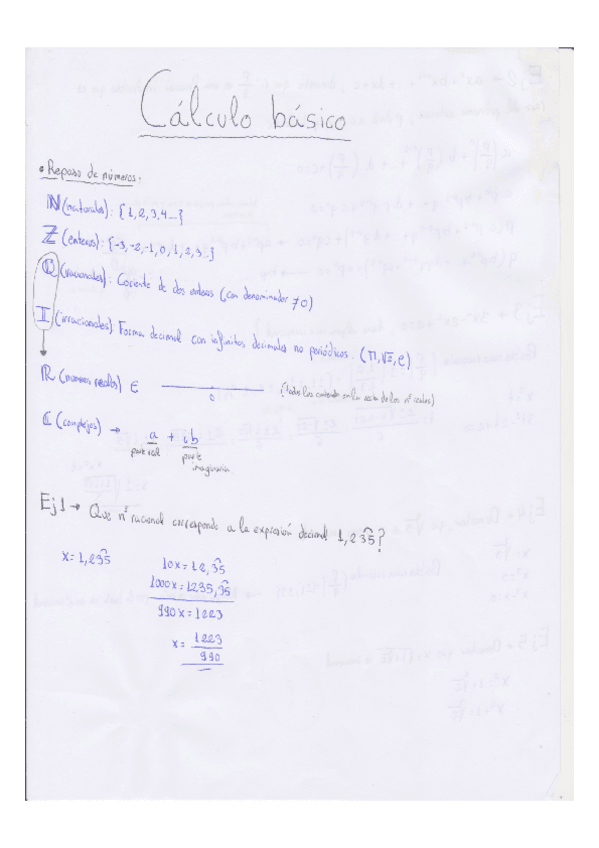 Cálculo básico
• Repaso de números.
N (naturales): {1,2,3,4...}
Z (enteros): {-3,-2,-1,0,1,2,3...}
Q (racionales): Cociente de dos enteros (con denominador ≠0)
I (irracionales): Forma decimal con infinitos decimales no periódicos. (π,√2,e)
R (números reales) ∈ 0 (todos los contenidos en la recta de los nº reales)
C (complejos) → a + ib
parte real parte imaginaria
Ej1 → Que nº racional corresponde a la expresión decimal 1,235?
x=1,235 10x=12,35
1000x=1235,35
990x=1223
x= 1223
990